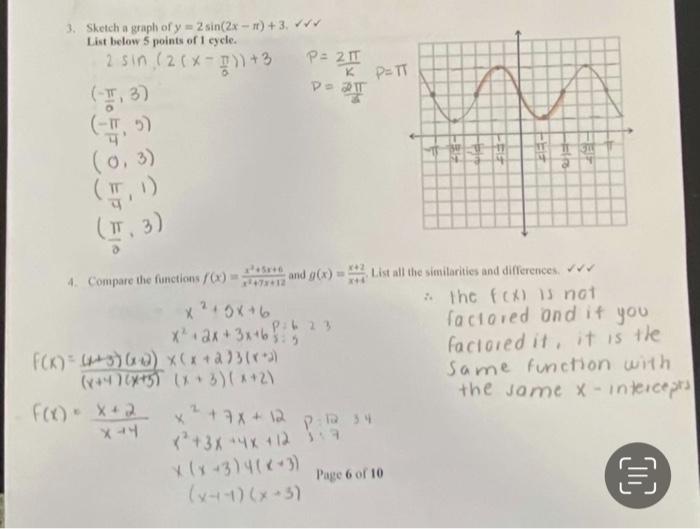 3. Sketch a graph of y = 2 sin(2x − π) + 3. ✓✓✓
List below 5 points of 1 cycle.
2 sin (2(x − π/2)) + 3
P = 2π/K
P = π
P = 2π/2
(-π/2, 3)
(-π/4, 5)
(0, 3)
(π/4, 1)
(π/2, 3)
-π -3π/4 -π/2 -π/4 π/4 π/2 3π/4 π
4. Compare the functions f(x) = x²+5x+6/x²+7x+12 and g(x) = x+2/x+4. List all the similarities and differences. ✓✓✓
x² + 5x + 6
x² + 2x + 3x + 6 P: 6 2 3
S: 5
x(x + 2) 3(x + 2)
(x + 3)(x + 2)
f(x) = (x+3)(x+2)/(x+4)(x+3)
f(x) = x + 2/x + 4
x² + 7x + 12 P: 12 3 4
x² + 3x + 4x + 12 S: 7
x(x + 3) 4(x + 3)
(x + 4)(x + 3)
∴ the f(x) is not
factored and if you
factored it, it is the
same function with
the same x - intercepts
Page 6 of 10